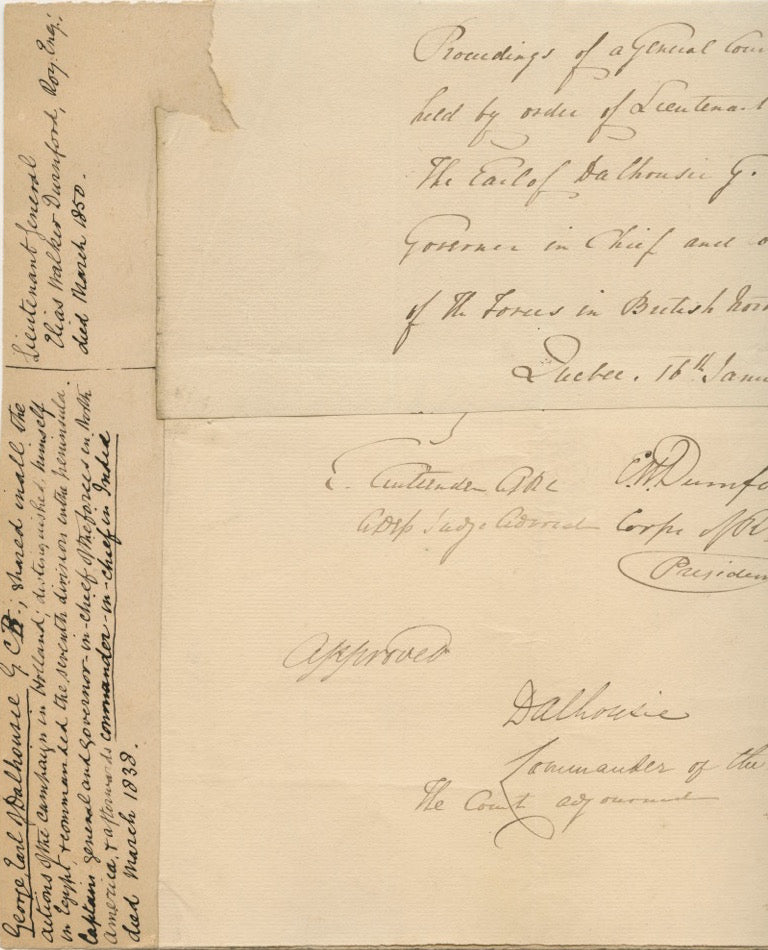 Lieutenant General
Elias Walker Durnford, Roy. Eng.
died March 1850.
George Earl of Dalhousie G. C. B.; shared in all the
actions of the campaign in Holland; distinguished himself
in Egypt, & commanded the seventh division in the peninsula.
Captain general and governor-in-chief of the forces in North
America, & afterwards commander-in-chief in India
died March 1838.
Proceedings of a General Cou
held by order of Lieutenant
The Earl of Dalhousie G.
Governor in Chief and
of the Forces in British Nor
Quebec. 16th Janu
E. W. Durnfo
Judge Advocate Corps of R
Presiden
Approved
Dalhousie
Commander of the
The Court adjourned